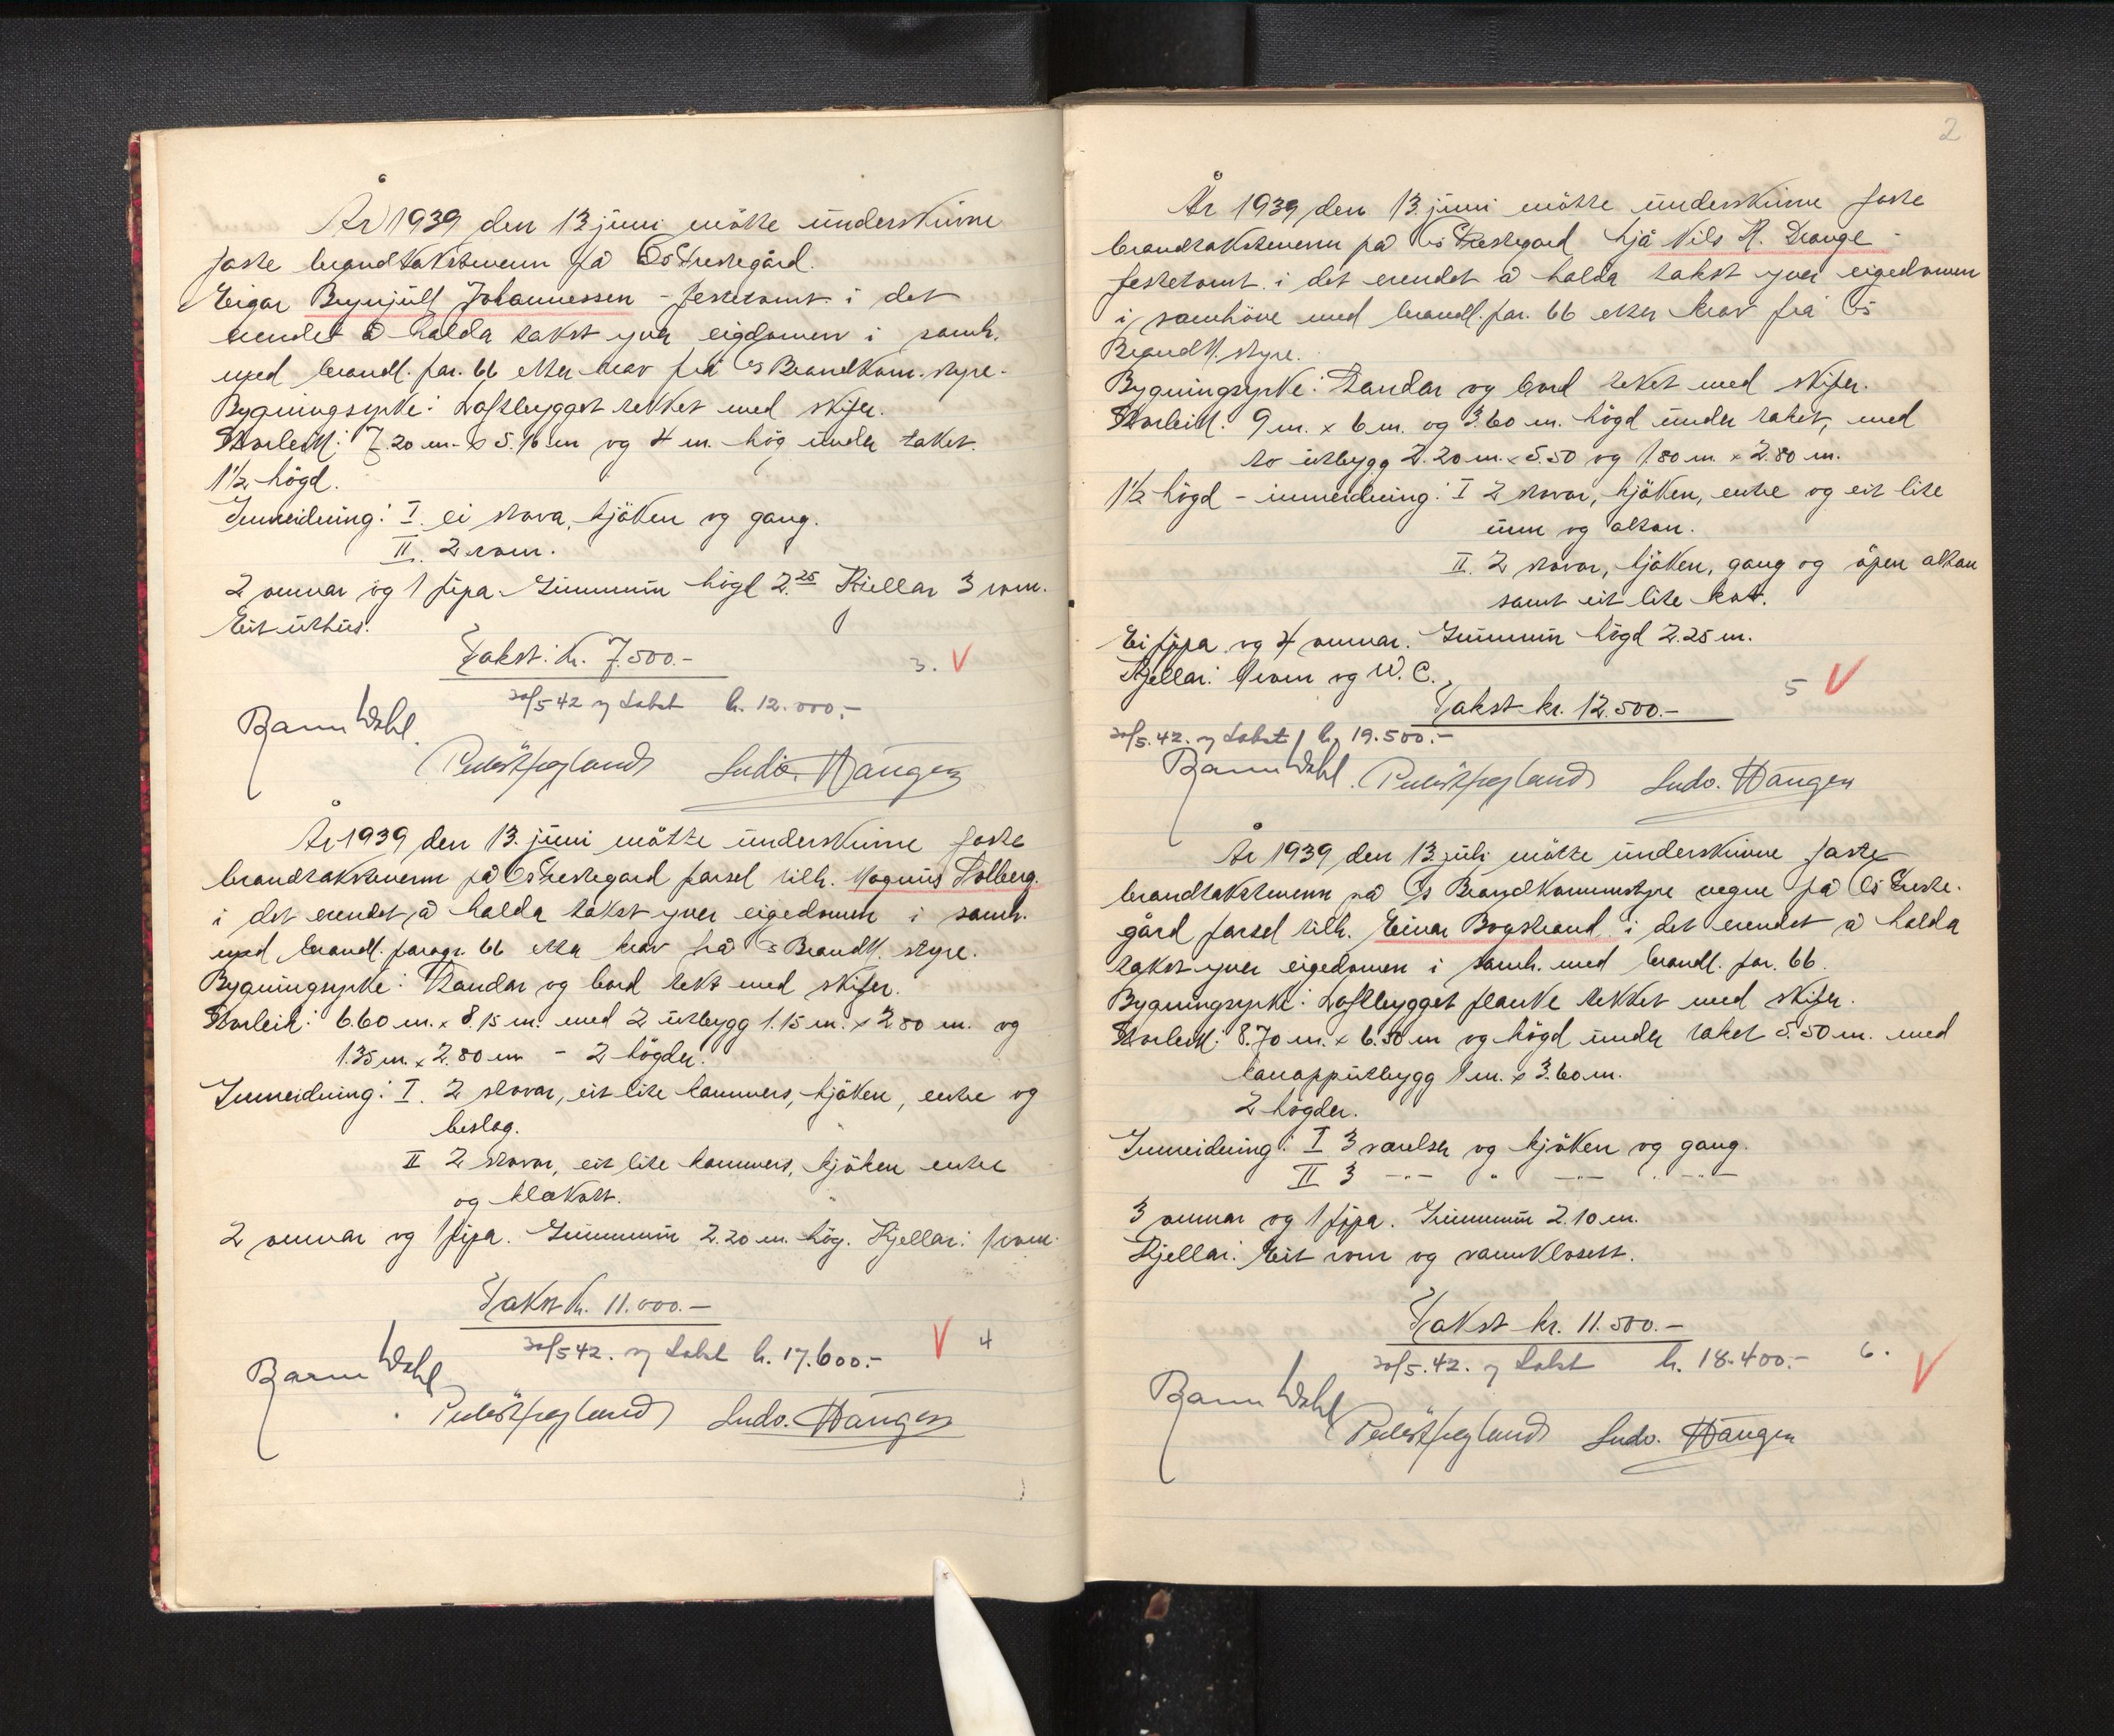 År 1939 den 13. juni møtte underskrivne
faste brandtakstmenn på Os Prestegård.
Eigar Brynjulf Johannessen - festetomt i det
erendet å halda takst yver eigdomen i samh.
med brandl. par. 66 etter krav frå Os Brandkom. styre.
Bygningsyrke: Loftbygget tekket med skifer.
Storleik: 7.20 m. x 5.10 m og 4 m. høg under taket.
1½ høgd.
Innreidning: I. ei stova, kjøken og gang.
II. 2 rom.
2 omnar og 1 pipa. Grunnmur høgd 2.25 Kjellar 3 rom.
Eit uthus.
Takst: kr. 7.500.-
3. V
30/5 42 ny takst kr. 12.000.-
Ludv. Haugen
År 1939 den 13. juni møtte underskrivne faste
brandtakstmenn på Os Prestegard parsel tilh. Magnus Solberg.
i det erendet å halda takst yver eigedomen i samh.
med brandl. paragr. 66 etter krav frå Os Brandk. styre.
Bygningsyrke: Standar og bord tekt med skifer.
Storleik: 6.60 m. x 8.15 m. med 2 utbygg 1.15 m. x 2.80 m. og
1.35 m. x 2.80 m - 2 høgder.
Innreidning: I. 2 stovar, eit lite kammers, kjøken, entre og
bislag.
II 2 stovar, eit lite kammers, kjøken entre
og klekott.
2 omnar og 1 pipa. Grunnmur 2.20 m. høg. Kjellar: 1 rom.
Takst kr. 11.000.-
30/5 42. ny takst kr. 17.600.- V 4
Ludv. Haugen
2
År 1939 den 13. juni møtte underskrivne faste
brandtakstmenn på Os Prestegard hjå Nils A. Drange -
festetomt i det erendet å halda takst yver eigedomen
i samhøve med brandl. par. 66 etter krav frå Os
Brandk. styre.
Bygningsyrke: Standar og bord teket med skifer.
Storleik: 9 m. x 6 m. og 3.60 m. høgd under taket, med
to utbygg 2.20 m. x 5.50 og 1.80 m. x 2.80 m.
1½ høgd - innreidning: I 2 stovar, kjøken, entre og eit lite
rum og altan.
II. 2 stovar, kjøken, gang og open altan
samt eit lite kot.
Ei pipa og 4 omnar. Grunnmur høgd 2.25 m.
Kjellar: 1 rom og W. C.
5 V
Takst kr. 12.500.-
30/5. 42. ny takst kr. 19.500.-
Ludv. Haugen
År 1939 den 13 juli møtte underskrivne faste
brandtakstmenn på Os Brandkommstyre vegne på Os Preste-
gård parsel tilh. Einar Bogstrand i det erendet å halda
takst yver eigedomen i samh. med brandl. par. 66.
Bygningsyrke: Loftbygget planke tekket med skifer.
Storleik: 8.70 m. x 6.50 m og høgd under taket 5.50 m. med
karapputbygg 1 m. x 3.60 m.
2 høgder.
Innreidning: I 3 værelser og kjøken og gang.
II 3 -"- " -"- " -"-
3 omnar og 1 pipa. Grunnmur 2.10 m.
Kjellar: Eit rom og vannklosett.
Takst kr. 11.500.-
30/5. 42. ny takst kr. 18.400.- 6. V
Ludv. Haugen